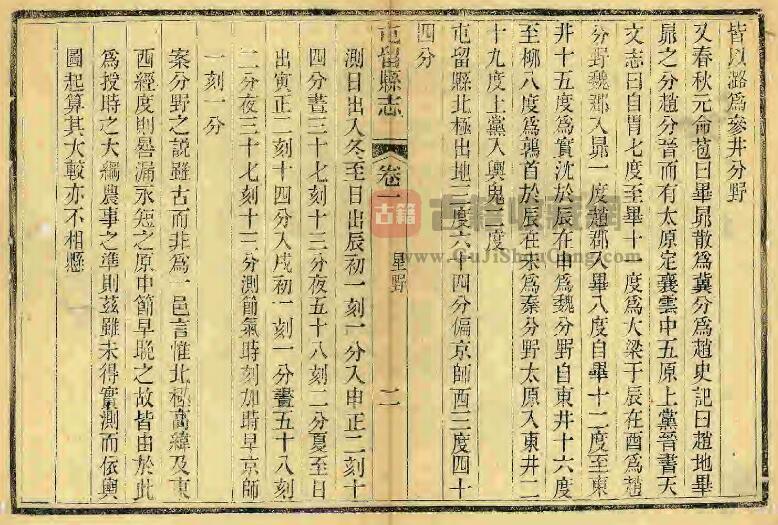 皆以潞為參井分野
又春秋元命苞曰畢昴散為冀分為趙史記曰趙地畢
昴之分趙分晉而有太原定襄雲中五原上黨晉書天
文志曰自胃七度至畢十一度為大梁于辰在酉為趙
分野魏郡入昴一度趙郡入畢八度自畢十二度至東
井十五度為實沈於辰在申為魏分野自東井十六度
至柳八度為鶉首於辰在未為秦分野太原入東井二
十九度上黨入輿鬼二度
屯留縣北極出地三度六十四分偏京師西三度四十
四分
屯留縣志 卷一 星野 二
測日出入冬至日出辰初一刻一分入申正二刻十
四分晝三十七刻十三分夜五十八刻二分夏至日
出寅正二刻十四分入戌初一刻一分晝五十八刻
二分夜三十七刻十三分測節氣時刻加時早京師
一刻一分
案分野之說雖古而非為一邑言惟北極高緯及東
西經度則晷漏永短之原中節早晚之故皆由於此
為授時之大綱農事之準則茲雖未得實測而依輿
圖起算其大較亦不相懸
古籍
古籍收藏網
www.GuJiShouCang.com